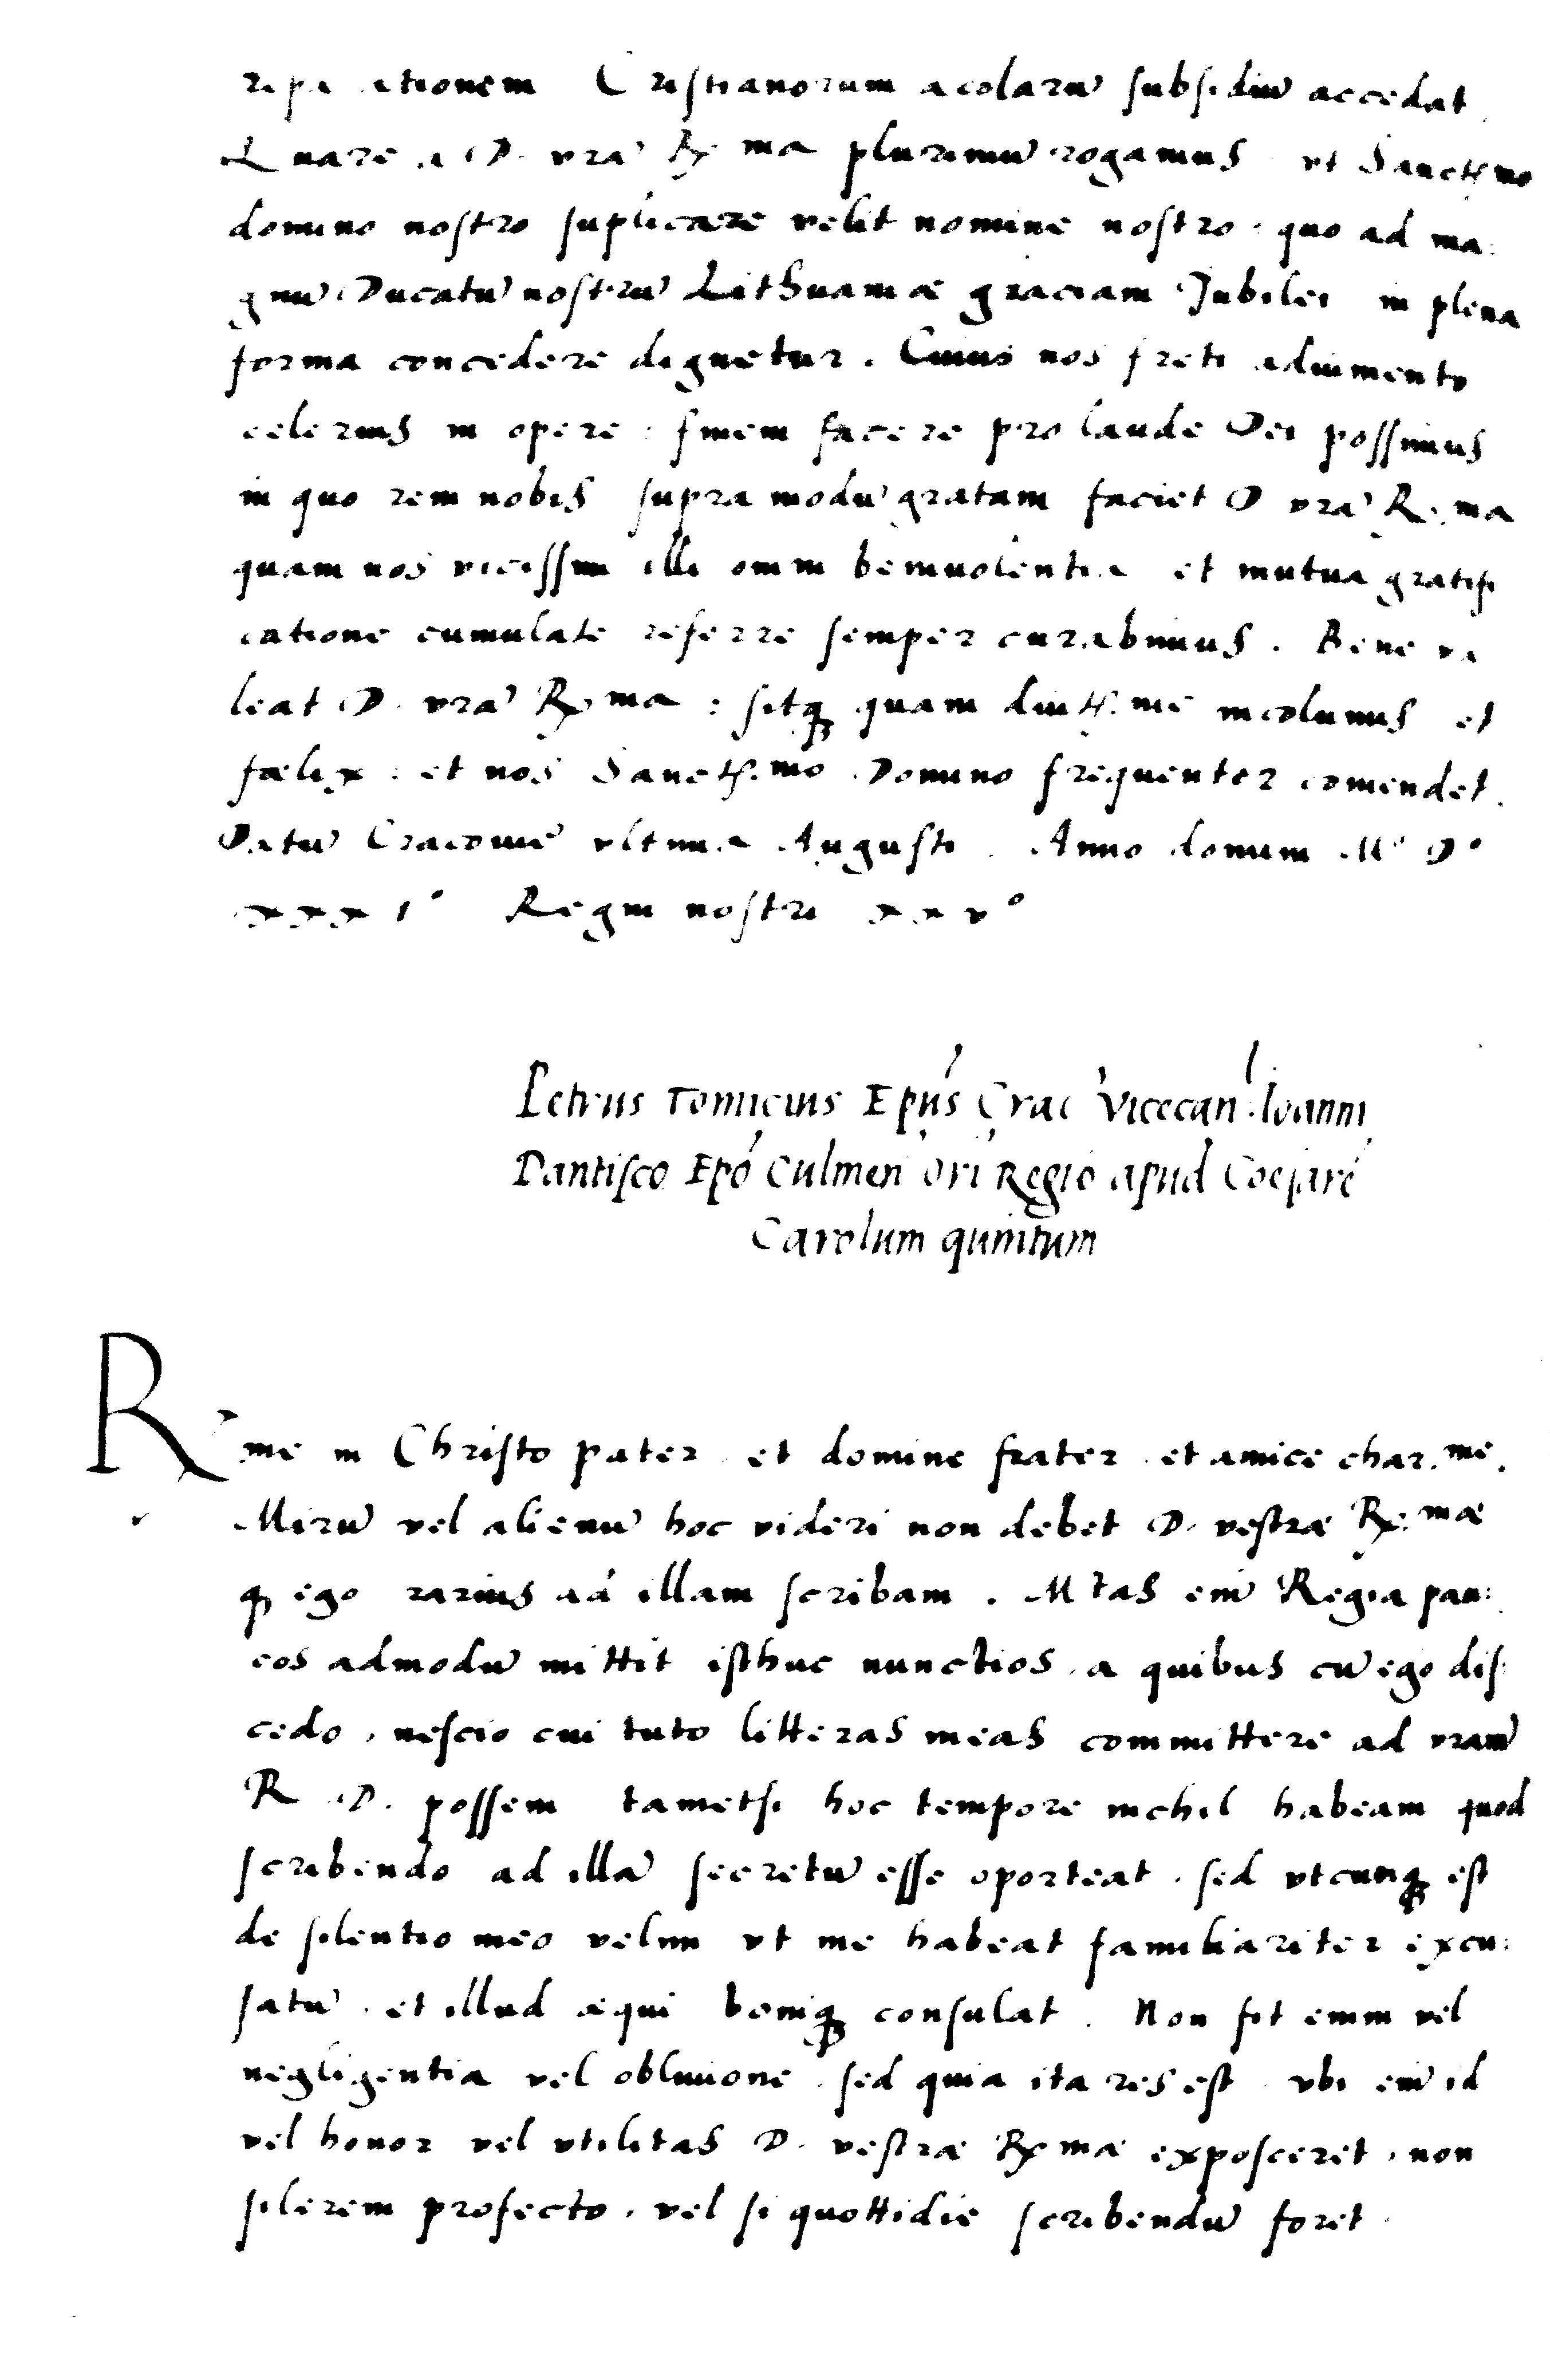 ripa ationem Cristianorum acolarũ subsidiũ accedat.
Quare a D. vra͂ R. ma plurimũ rogamus vt Sanctis.mo
domino nostro suplicare velit nomine nostro: quo ad ma:
gnũ Ducatũ nostrũ Lithuaniæ graciam Jubilei in plena
forma concedere dignetur. Cuius nos freti adiumento
celerius in opere: finem facere pro laude Dei possimus
in quo rem nobis supra modũ gratam faciet D vra͂ R.ma
quam nos vicissim illi omni beniuolentia et mutua gratifi
catione cumulate referre semper curabimus. Bene va
leat D. vra͂ R.ma: sitq3 quam diutis.me incolumis et
fælix: et nos Sanctis.mo Domino frequenter comendet.
Datũ Cracouiẽ vltima Augusti. Anno domini M° D°
xxx 1° Regni nostri xx v°
Petrus Tomicius Epũs Crac̃ Vicecan̄. Ioanni
Dantisco Epõ Culmeñ Orĩ Regio apud Coesarẽ
Carolum quintum
R. me in Christo pater et domine frater et amice char.me.
Mirũ vel alienũ hoc videri non debet D. vestræ R.mæ
q̃ ego rarius ad illam scribam. Mtas eñi Regia pau:
cos admodũ mittit isthuc nunctios, a quibus cũ ego dis:
cedo, nescio cui tuto litteras meas committere ad vram̃
R D. possem tametsi hoc tempore nichil habeam quod
scribendo ad illã secretũ esse oporteat. sed vtcunq3 est
de silentio meo velim vt me habeat familiariter excu:
satũ. et illud æqui boniq3 consulat. Non fit enim vel
negligentia vel obliuione. sed quia ita res est. vbi eñi id
vel honor vel vtilitas D. vestræ R.mæ exposceret, non
silerem profecto, vel si quottidie scribendũ foret.